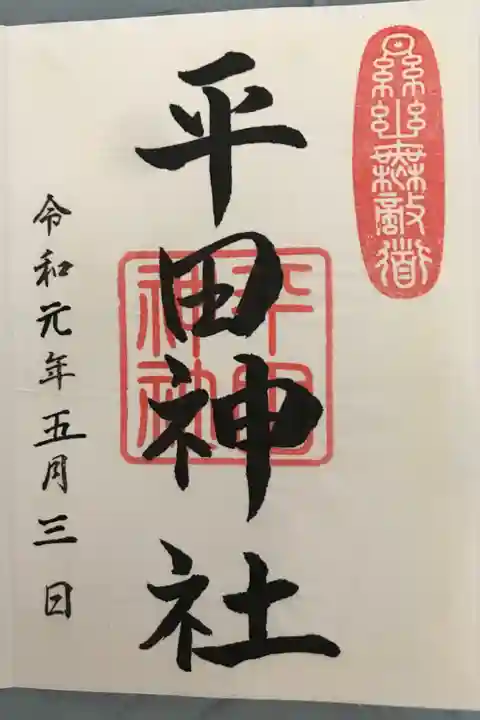 平田神社
平田
神社
令和元年五月三日